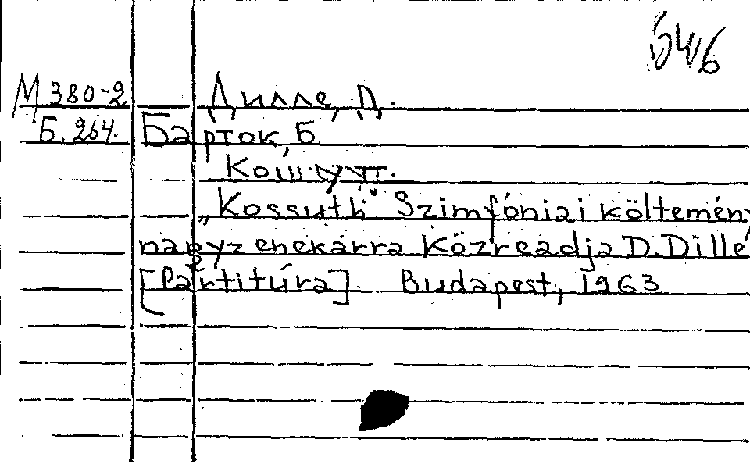 546
М 380-2 Дилле, Д.
Б. 264. Барток, Б
Кошут.
„Kossuth" Szimfóniai költemény
nagyzenekarra Közreadja D. Dille
[Partitúra] Budapest, 1963